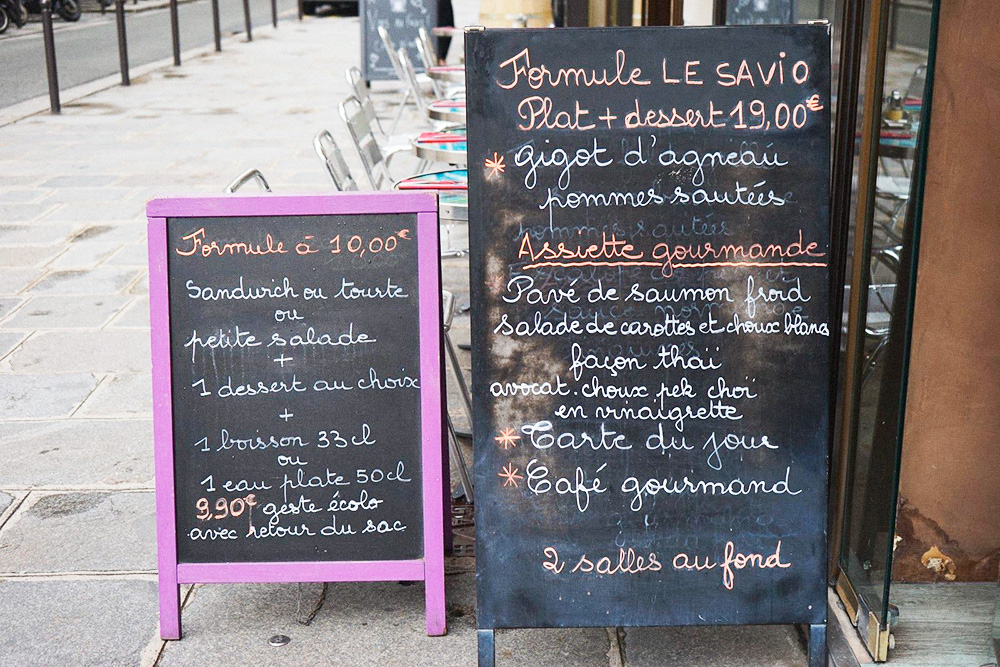 Formule à 10,00€
Sandwich ou tourte
ou
petite salade
+
1 dessert au choix
+
1 boisson 33cl
ou
1 eau plate 50cl
9,90€ geste écolo
avec retour du sac
Formule LE SAViO
Plat + dessert 19,00€
* gigot d'agneau
pommes sautées
Assiette gourmande
Pavé de saumon froid
salade de carottes et choux blancs
façon thaï
avocat. choux pek choï
en vinaigrette
* Tarte du jour
* Café gourmand
2 salles au fond